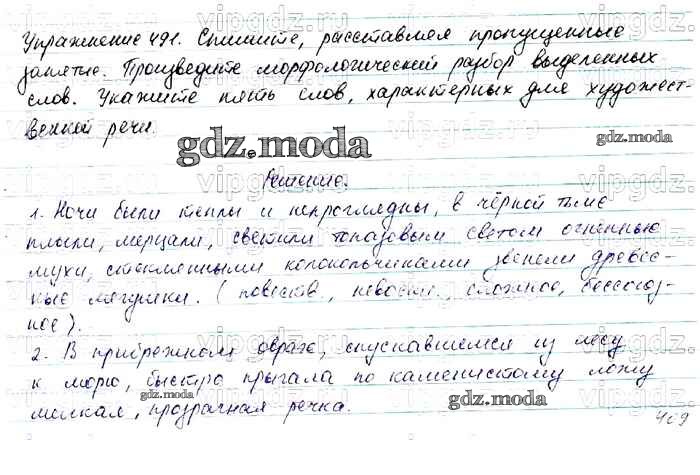 Упражнение 491. Спишите, расставляя пропущенные
запятые. Произведите морфологический разбор выделенных
слов. Укажите пять слов, характерных для художест-
венной речи.
gdz.moda
Решение.
1. Ночи были теплы и непроглядны, в чёрной тьме
плыли, мерцали, светили топазовым светом огненные
мухи, стеклянными колокольчиками звенели древес-
ные лягушки. (повеств., невоскл., сложное, бессоюз-
ное).
2. В прибрежном овраге, спускавшемся из лесу
к морю, быстро прыгала по каменистому ложу
мелкая, прозрачная речка.
gdz.moda
gdz.moda
409
vipgdz.ru